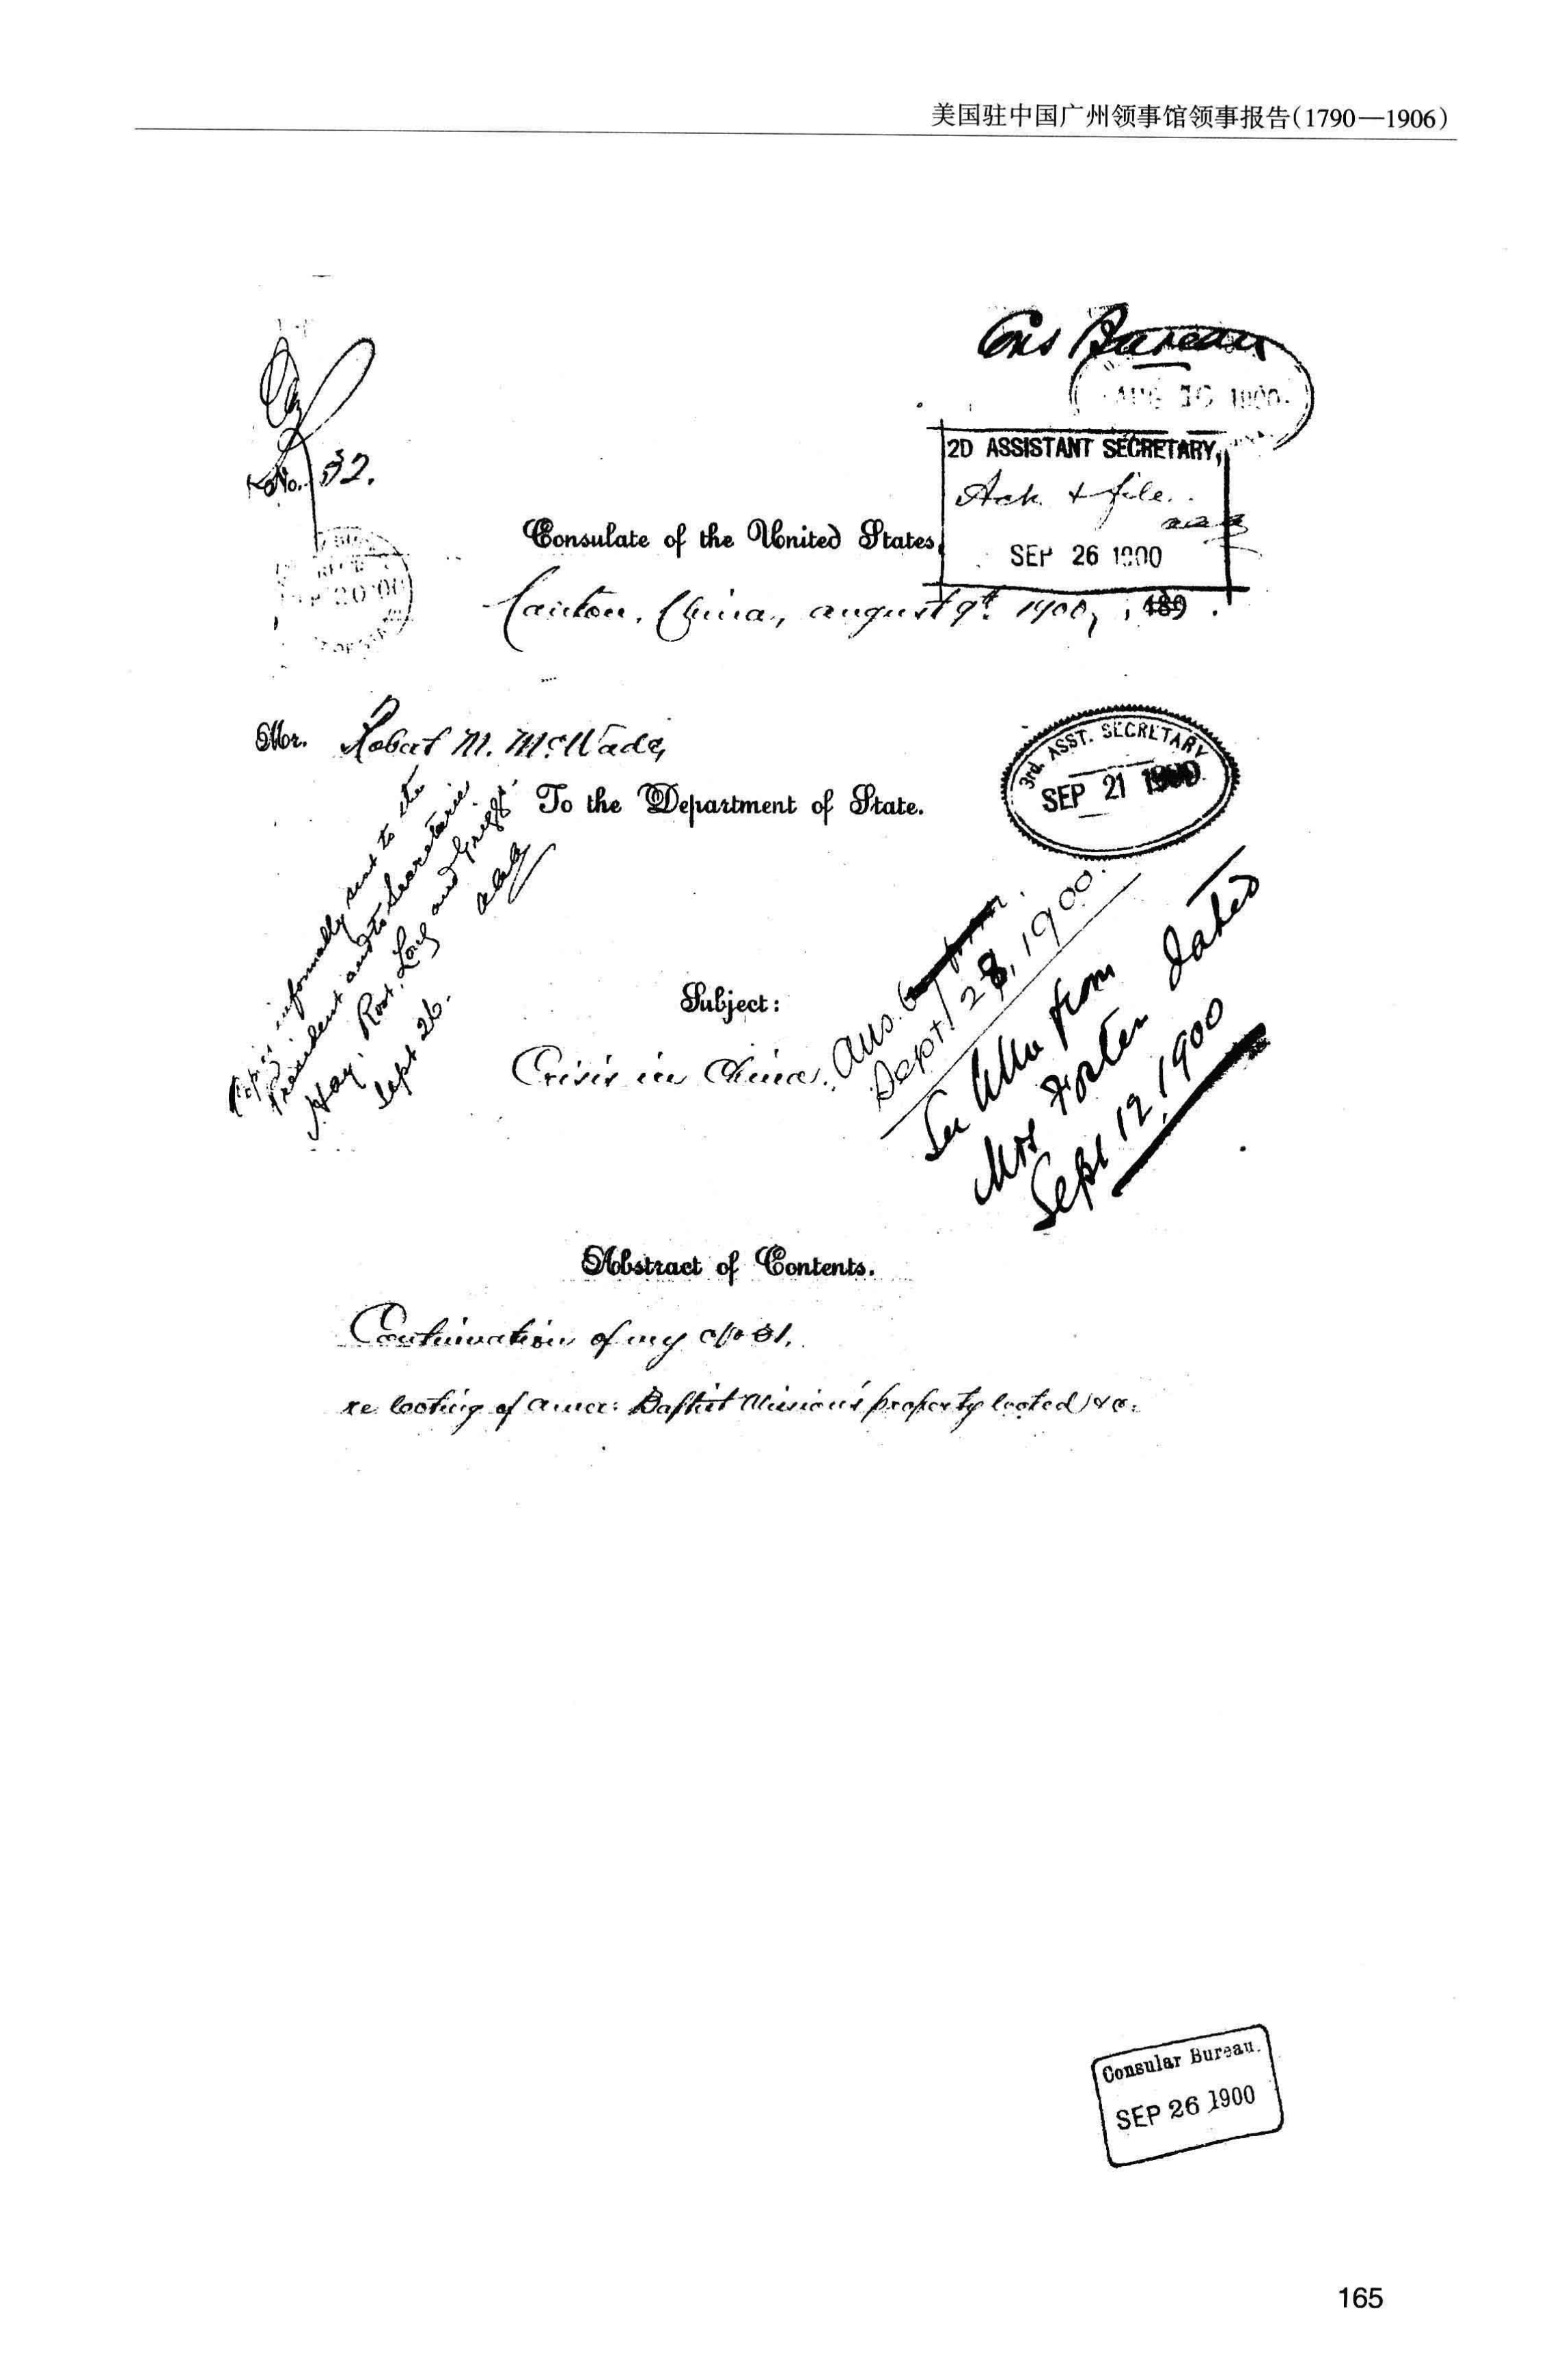 美国驻中国广州领事馆领事报告(1790—1906)
Cons Bureau
1900
2D ASSISTANT SECRETARY,
Ack. & file.
aaa
SEP 26 1900
No. 32.
Consulate of the United States,
Canton, China, august 9th 1900, , 189 .
Mr. Robert M. McWade,
To the Department of State.
3rd. ASST. SECRETARY
SEP 21 1900
informally sent to the
President and to Secretaries
Hay, Root, Long and Griggs.
Sept 26.
aaa
Subject:
Crisis in China.
ans.
Sept 28, 1900.
from
Mrs dated
Sept 12, 1900
Abstract of Contents.
Continuation of my No 31.
re looting of amer: Baptist Mission's property looted &c.
Consular Bureau.
SEP 26 1900
165